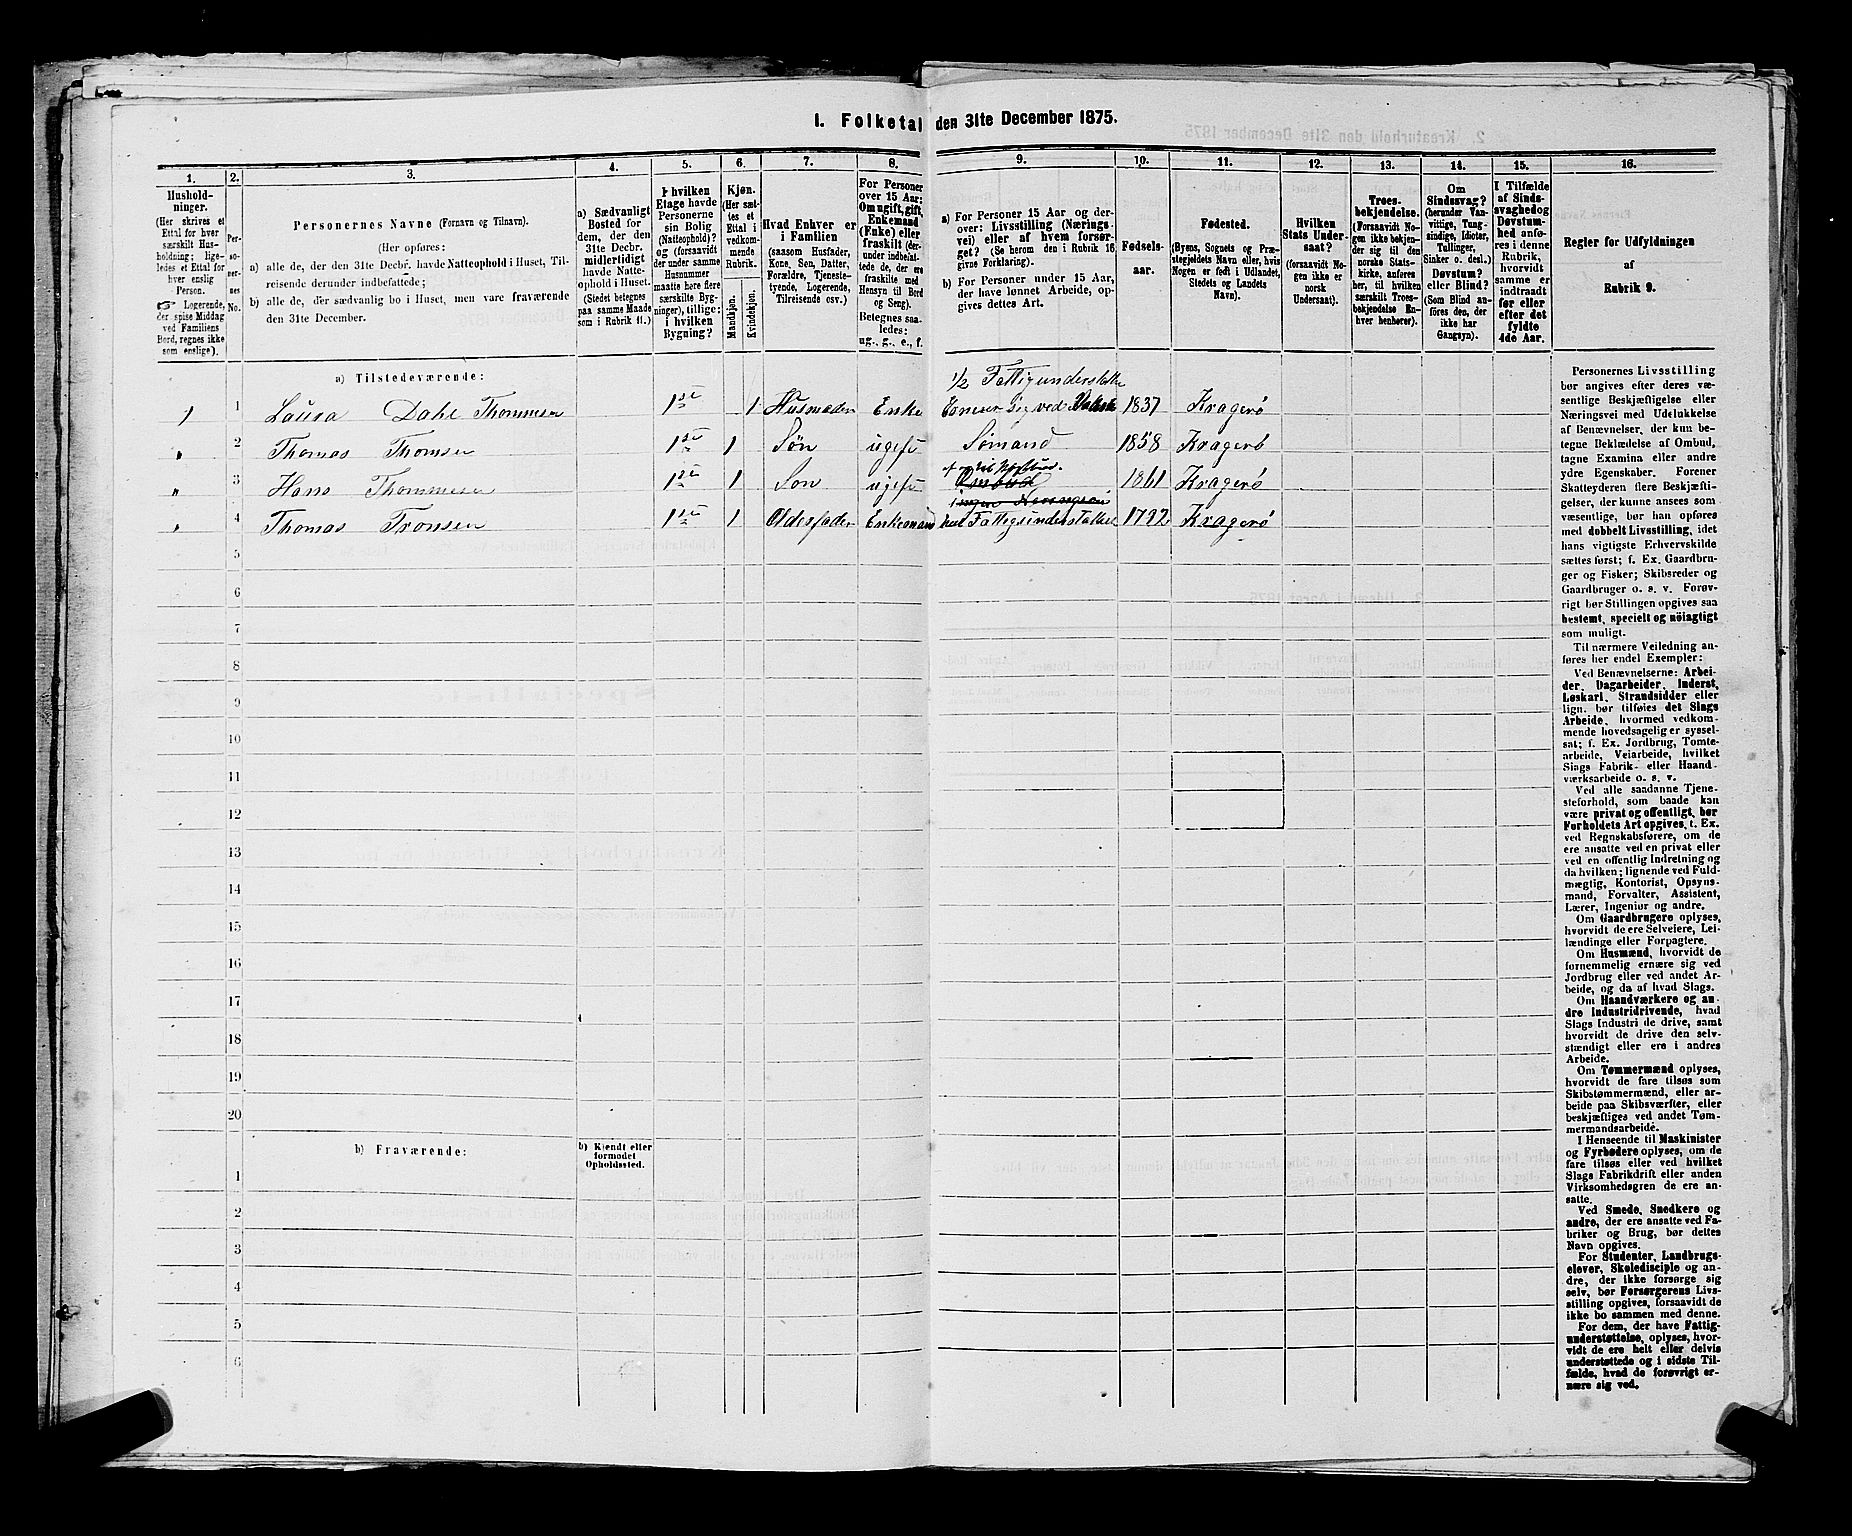 I. Folketal den 31te December 1875.
1. 2. 3. 4. 5. 6. 7. 8. 9. 10. 11. 12. 13. 14. 15. 16.
Hushold-
ninger.
(Her skrives et
Ettal for hver
særskilt Hus-
holdning; lige-
ledes et Ettal for
hver enslig
Person.
☞ Logerende,
der spise Middag
ved Familiens
Bord, regnes ikke
som enslige).
Per-
so-
ner-
nes
No.
Personernes Navne (Fornavn og Tilnavn).
(Her opføres:
a) alle de, der den 31te Decbr. havde Natteophold i Huset, Til-
reisende derunder indbefattede;
b) alle de, der sædvanlig bo i Huset, men vare fraværende
den 31te December.
a) Sædvanligt
Bosted for
dem, der den
31te Decbr.
midlertidigt
havde Natte-
ophold i Huset.
(Stedet betegnes
paa samme Maade
som i Rubrik 11.)
I hvilken
Etage havde
Personerne
sin Bolig
(Natteophold)?
og (forsaavidt
der under samme
Husnummer
maatte høre flere
særskilte Byg-
ninger), tillige:
i hvilken
Bygning?
Kjøn.
(Her sæt-
tes et
Ettal i
vedkom-
mende
Rubrik.
Mandkjøn.
Kvindekjøn.
Hvad Enhver er
i Familien
(saasom Husfader,
Kone, Søn, Datter,
Forældre, Tjeneste-
tyende, Logerende,
Tilreisende osv.)
For Personer
over 15 Aar:
Om ugift, gift,
Enkemand
(Enke) eller
fraskilt (der-
under indbefat-
tede de, der ere
fraskilte med
Hensyn til Bord
og Seng).
Betegnes saa-
ledes:
ug., g., e., f.
a) For Personer 15 Aar og der-
over: Livsstilling (Nærings-
vei) eller af hvem forsør-
get? (Se herom den i Rubrik 16
givne Forklaring).
b) For Personer under 15 Aar,
der have lønnet Arbeide, op-
gives dettes Art.
Fødsels-
aar.
Fødested.
(Byens, Sognets og Præ-
stegjeldets Navn eller, hvis
Nogen er født i Udlandet,
Stedets og Landets
Navn).
Hvilken
Stats Under-
saat?
(forsaavidt No-
gen ikke er
norsk
Undersaat).
Troes-
bekjendelse.
(Forsaavidt No-
gen ikke bekjen-
der sig til den
norske Stats-
kirke, anføres
her, til hvilken
særskilt Troes-
bekjendelse En-
hver henhører).
Om
Sindssvag?
(herunder Van-
vittige, Tung-
sindige, Idioter,
Tullinger,
Sinker o. desl.).
Døvstum?
eller Blind?
(Som Blind an-
føres den, der
ikke har
Gangsyn).
I Tilfælde
af Sinds-
svaghed og
Døvstum-
hed anfø-
res i denne
Rubrik,
hvorvidt
samme er
indtraadt
før eller
efter det
fyldte
4de Aar.
Regler for Udfyldningen
af
Rubrik 9.
a) Tilstedeværende:
1/2 Fattigunderstøtte
1 1 Laura Dahl Thommesen 1ste 1 Husmoder Enke sig ved 1837 Kragerø
" 2 Thomas Thomsen 1ste 1 Søn ugift Sømand 1858 Kragerø
" 3 Hans Thommesen 1ste 1 Søn ugift 1861 Kragerø
" 4 Thomas Tronsen 1ste 1 Oldefader Enkemand Fattigunderstøttet 1792 Kragerø
5
6
7
8
9
10
11
12
13
14
15
16
17
18
19
20
b) Fraværende:
b) Kjendt eller
formodet
Opholdssted.
1
2
3
4
5
6
Personernes Livsstilling
bør angives efter deres væ-
sentlige Beskjæftigelse eller
Næringsvei med Udelukkelse
af Benævnelser, der kun be-
tegne Beklædelse af Ombud,
tagne Examina eller andre
ydre Egenskaber. Forener
Skatteyderen flere Beskjæfti-
gelser, der kunne ansees som
væsentlige, bør han opføres
med dobbelt Livsstilling, idet
hans vigtigste Erhvervskilde
sættes først; f. Ex. Gaardbru-
ger og Fisker; Skibsreder og
Gaardbruger o. s. v. Forøv-
rigt bør Stillingen opgives saa
bestemt, specielt og nöiagtigt
som muligt.
Til nærmere Veiledning an-
føres her endel Exempler:
Ved Benævnelserne: Arbei-
der, Dagarbeider, Inderst,
Løskarl, Strandsidder eller
lign. bør tilføies det Slags
Arbeide, hvormed vedkom-
mende hovedsagelig er syssel-
sat; f. Ex. Jordbrug, Tomte-
arbeide, Veiarbeide, hvilket
Slags Fabrik- eller Haand-
værksarbeide o. s. v.
Ved alle saadanne Tjene-
steforhold, som baade kan
være privat og offentligt, bør
Forholdets Art opgives, f. Ex.
ved Regnskabsførere, om de
ere ansatte ved en privat eller
ved en offentlig Indretning og
da hvilken; lignende ved Fuld-
mægtig, Kontorist, Opsyns-
mand, Forvalter, Assistent,
Lærer, Ingeniør og andre.
Om Gaardbrugere oplyses,
hvorvidt de ere Selveiere, Lei-
lændinge eller Forpagtere.
Om Husmænd, hvorvidt de
fornemmelig ernære sig ved
Jordbrug eller ved andet Ar-
beide, og da af hvad Slags.
Om Haandværkere og an-
dre Industridrivende, hvad
Slags Industri de drive, samt
hvorvidt de drive den selv-
stændigt eller ere i andres
Arbeide.
Om Tømmermænd oplyses,
hvorvidt de fare tilsøs som
Skibstømmermænd, eller ar-
beide paa Skibsværfter, eller
beskjæftiges ved andet Tøm-
mermandsarbeide.
I Henseende til Maskinister
og Fyrbødere oplyses, om de
fare tilsøs eller ved hvilket
Slags Fabrikdrift eller anden
Virksomhedsgren de ere an-
satte.
Ved Smede, Snedkere og
andre, der ere ansatte ved Fa-
briker og Brug, bør dettes
Navn opgives.
For Studenter, Landbrugs-
elever, Skoledisciple og an-
dre, der ikke forsørge sig
selv, bør Forsørgerens Livs-
stilling opgives, forsaavidt de
ikke bo sammen med denne.
For dem, der have Fattig-
understøttelse, oplyses, hvor-
vidt de ere helt eller delvis
understøttede og i sidste Til-
fælde, hvad de forøvrigt er-
nære sig ved.